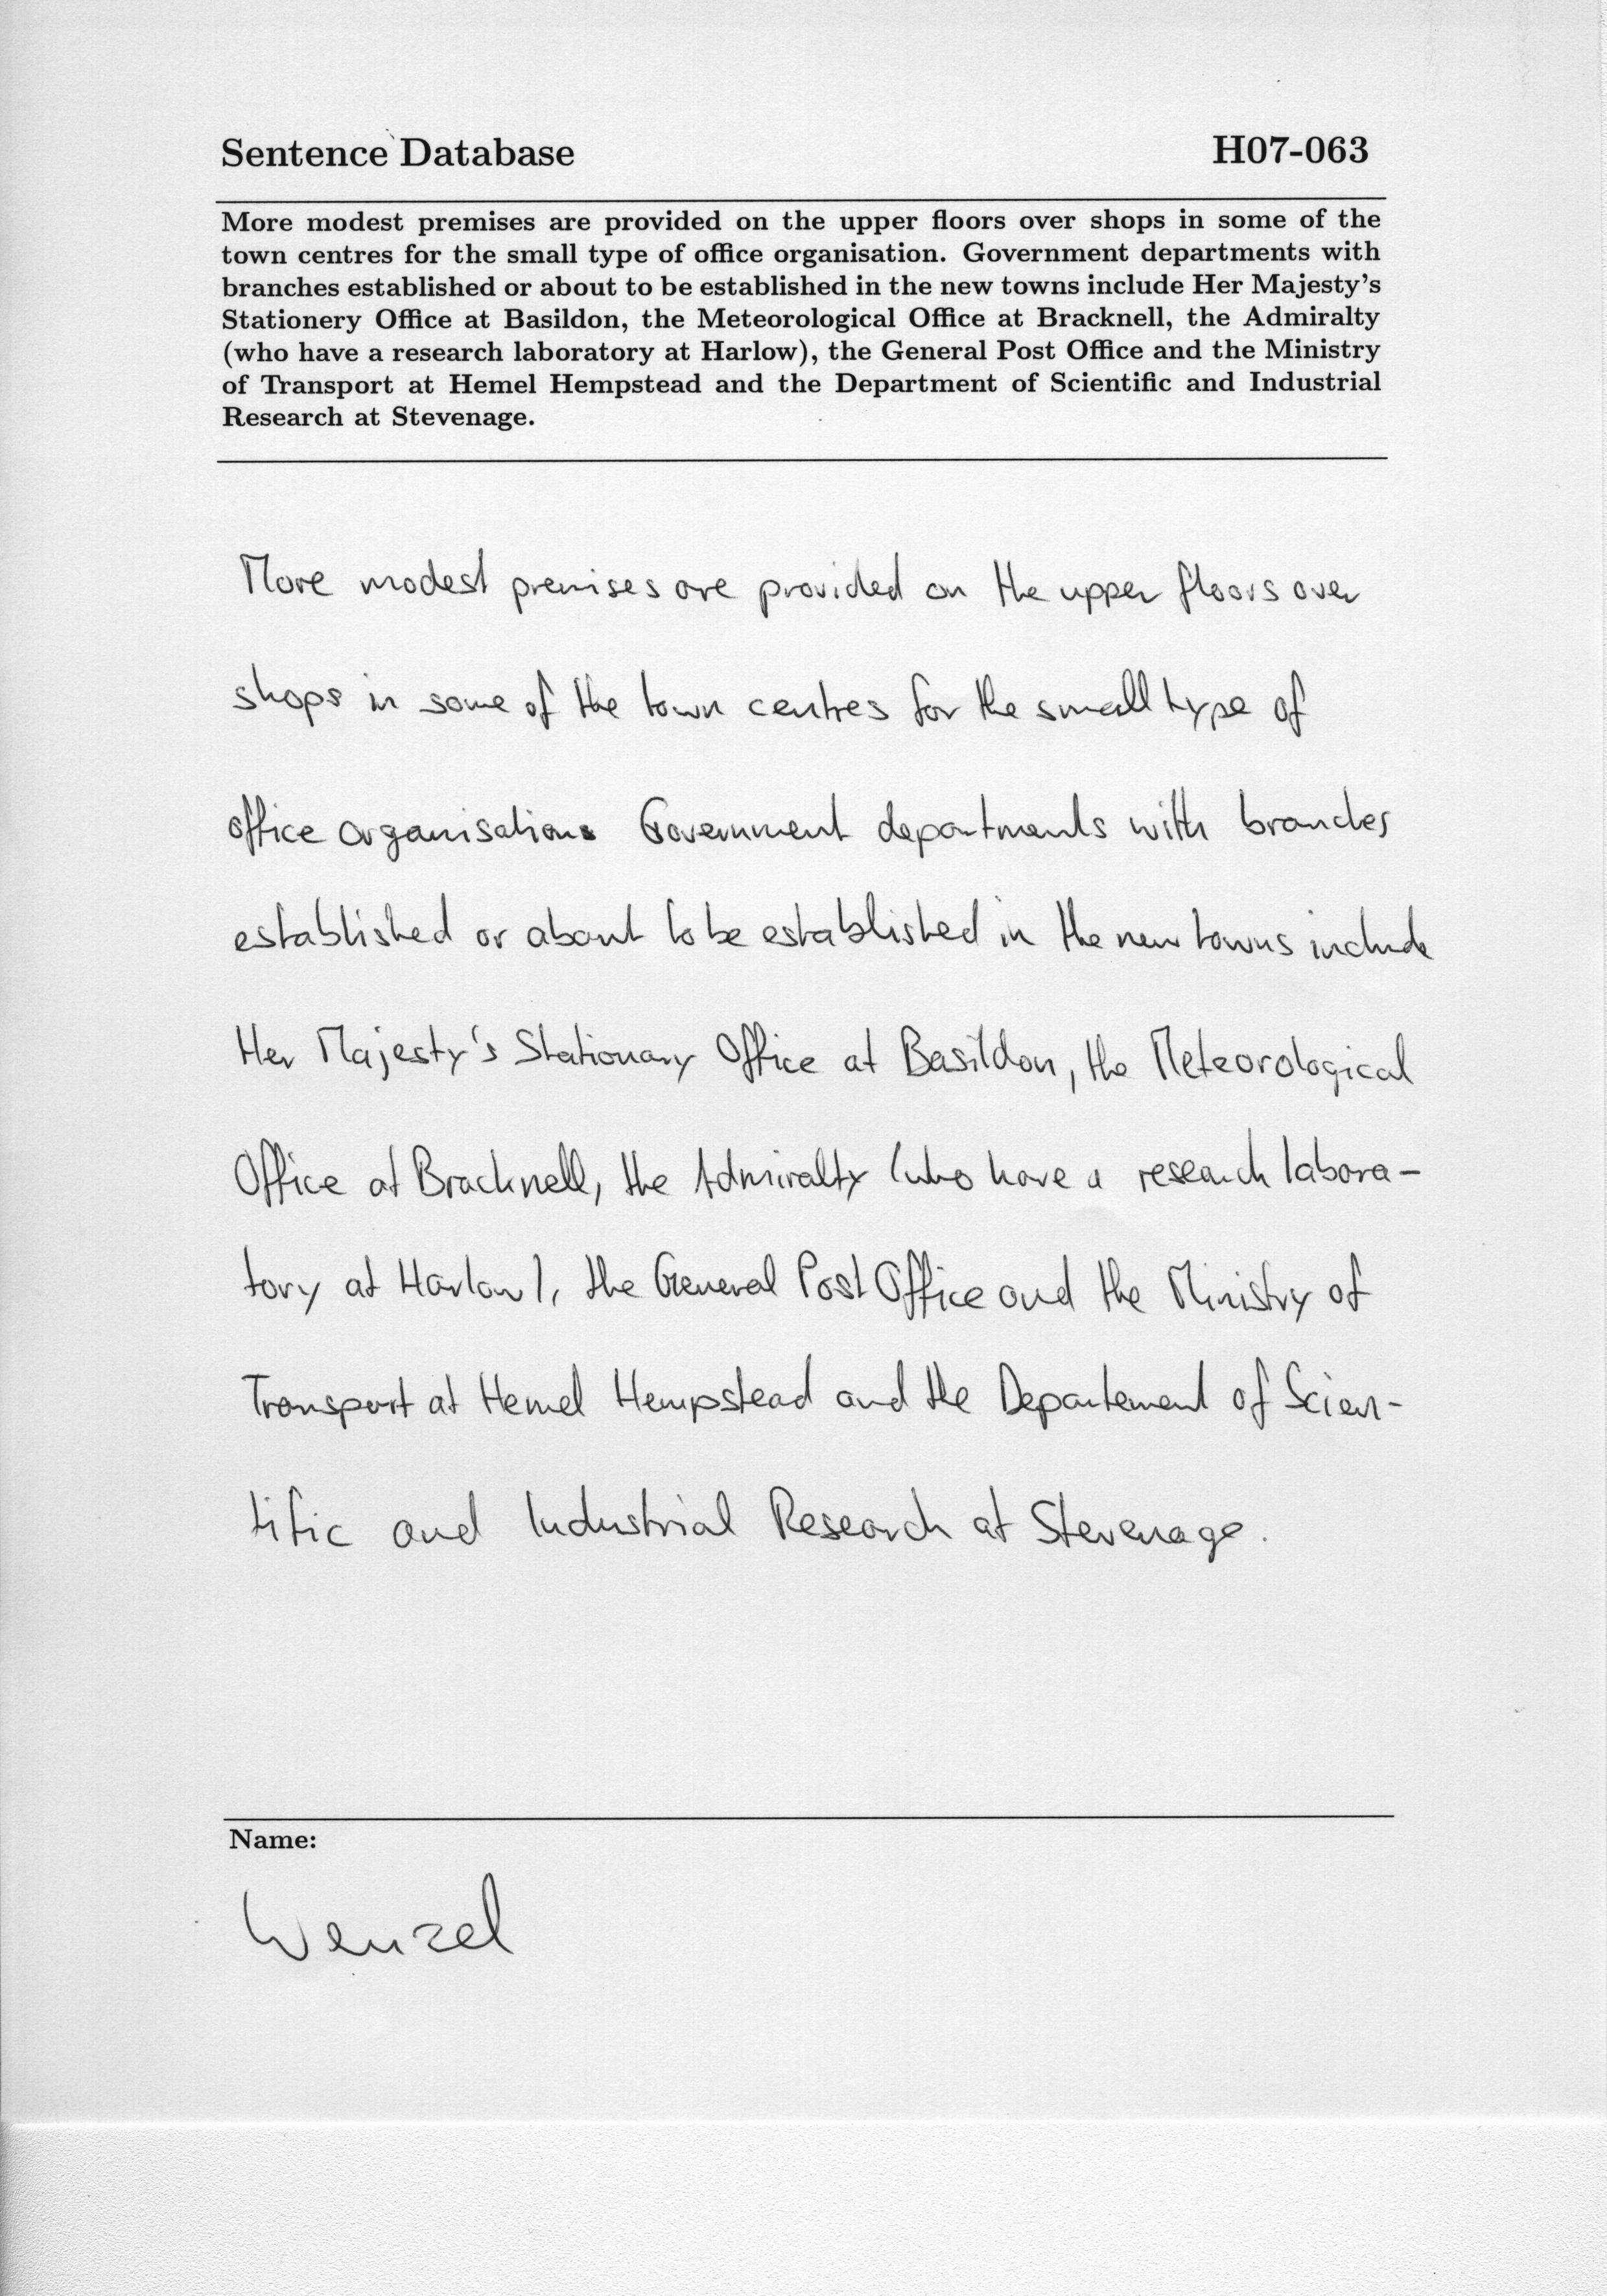 Sentence Database H07-063
More modest premises are provided on the upper floors over shops in some of the
town centres for the small type of office organisation. Government departments with
branches established or about to be established in the new towns include Her Majesty's
Stationery Office at Basildon, the Meteorological Office at Bracknell, the Admiralty
(who have a research laboratory at Harlow), the General Post Office and the Ministry
of Transport at Hemel Hempstead and the Department of Scientific and Industrial
Research at Stevenage.
More modest premises are provided on the upper floors over
shops in some of the town centres for the small type of
office organisation. Government departments with branches
established or about to be established in the new towns include
Her Majesty's Stationary Office at Basildon, the Meteorological
Office at Bracknell, the Admiralty (who have a research labora-
tory at Harlow), the General Post Office and the Ministry of
Transport at Hemel Hempstead and the Departement of Scien-
tific and Industrial Research at Stevenage.
Name:
Wenzel